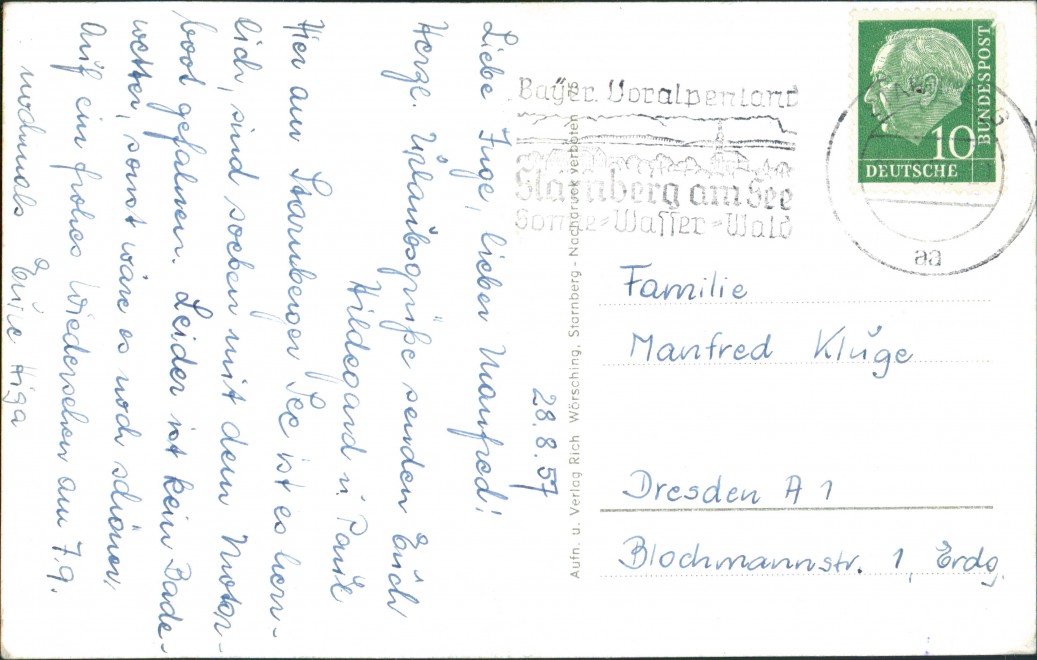 28.8.57
Liebe Inge, lieber Manfred!
Herzl. Urlaubsgrüße senden Euch
Hildegard u. Paul
Hier am Starnberger See ist es herr-
lich, sind soeben mit dem Motor-
boot gefahren. Leider ist kein Bade-
wetter, sonst wäre es noch schöner,
Auf ein frohes Wiedersehen am 7.9.
nochmals Eure Higa
Aufn. u. Verlag Rich Wörsching, Starnberg. - Nachdruck verboten
Bayer. Voralpenland
Starnberg am See
Sonne=Wasser=Wald
DEUTSCHE
BUNDESPOST
10
aa
Familie
Manfred Kluge
Dresden A 1
Blochmannstr. 1, Erdg.